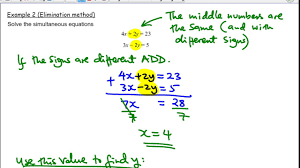 Example 2 (Elimination method)
Solve the simultaneous equations
4x + 2y = 23
3x - 2y = 5
The middle numbers are
the same (and with
different signs)
If the signs are different ADD.
4x + 2y = 23
+ 3x - 2y = 5
7x = 28
7 7
x = 4
use this value to find y: